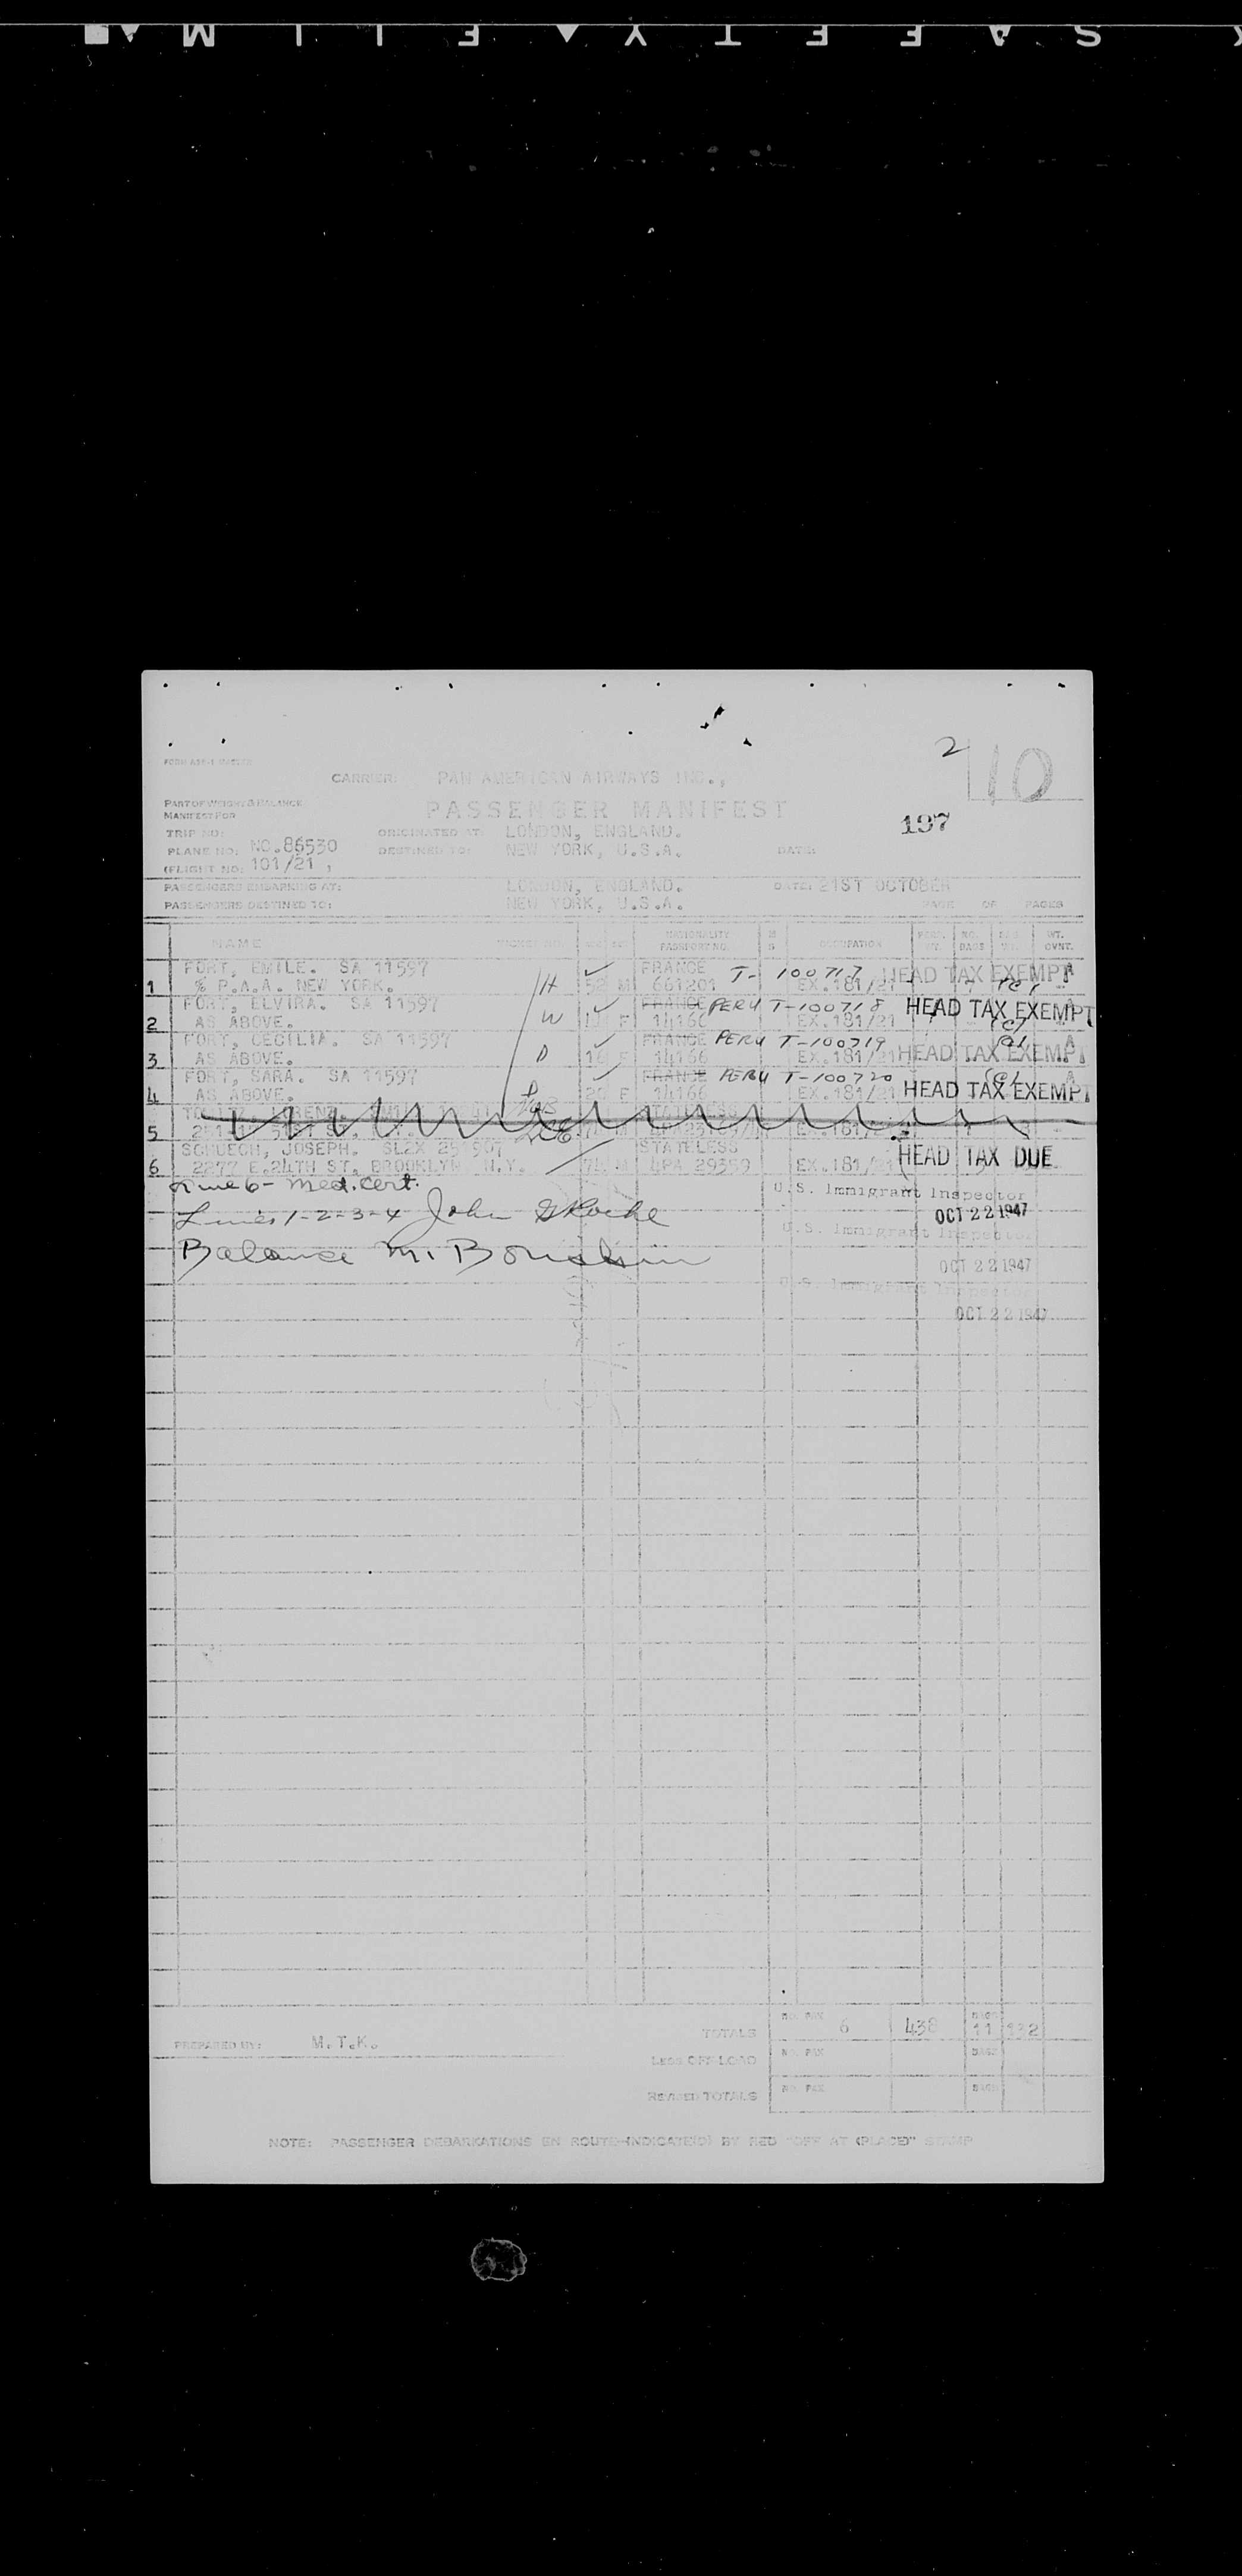 SAFETY FILM
2 110
CARRIER: PAN AMERICAN AIRWAYS INC.,
PART OF WEIGHT & BALANCE
MANIFEST FOR
PASSENGER MANIFEST
197
TRIP NO:
ORIGINATED AT: LONDON, ENGLAND.
PLANE NO: NO.86530
DESTINED TO: NEW YORK, U.S.A. DATE:
(FLIGHT NO: 101/21 ,
PASSENGERS EMBARKING AT: LONDON, ENGLAND. DATE: 21ST OCTOBER
PASSENGERS DESTINED TO: NEW YORK, U.S.A. PAGE OF PAGES
NAME NATIONALITY PASSPORT NO. OCCUPATION PERS. WT. NO. BAGS WT. CVNT.
1 FORT, EMILE. SA 11597 FRANCE T- 100717 HEAD TAX EXEMPT
% P.A.A. NEW YORK. H 52 M 661201 EX.181/21
2 FORT, ELVIRA. SA 11597 FRANCE PERU T-100718 HEAD TAX EXEMPT
AS ABOVE. W F 14166 EX.181/21
3 FORT, CECILIA. SA 11597 FRANCE PERU T-100719
AS ABOVE. D 16 F 14166 EX.181/21 HEAD TAX EXEMPT
4 FORT, SARA. SA 11597 FRANCE PERU T-100720
AS ABOVE. F 14166 EX.181/21 HEAD TAX EXEMPT
5
6 SCHUECH, JOSEPH. SLZX STATELESS
2277 E.24TH ST, BROOKLYN, N.Y. M 4PA 29359 EX.181/21 HEAD TAX DUE
Line 6- med. cert.
U.S. Immigrant Inspector
OCT 22 1947
Lines 1-2-3-4 John
U.S. Immigrant Inspector
Balance M.
OCT 22 1947
U.S. Immigrant Inspector
OCT 22 1947
TOTALS NO. PAX 6 438 BAGS 11
PREPARED BY: M.T.K.
LESS OFF-LOAD NO. PAX BAGS
REVISED TOTALS NO. PAX BAGS
NOTE: PASSENGER DEBARKATIONS EN ROUTE INDICATE(D) BY RED "OFF AT (PLACE)" STAMP